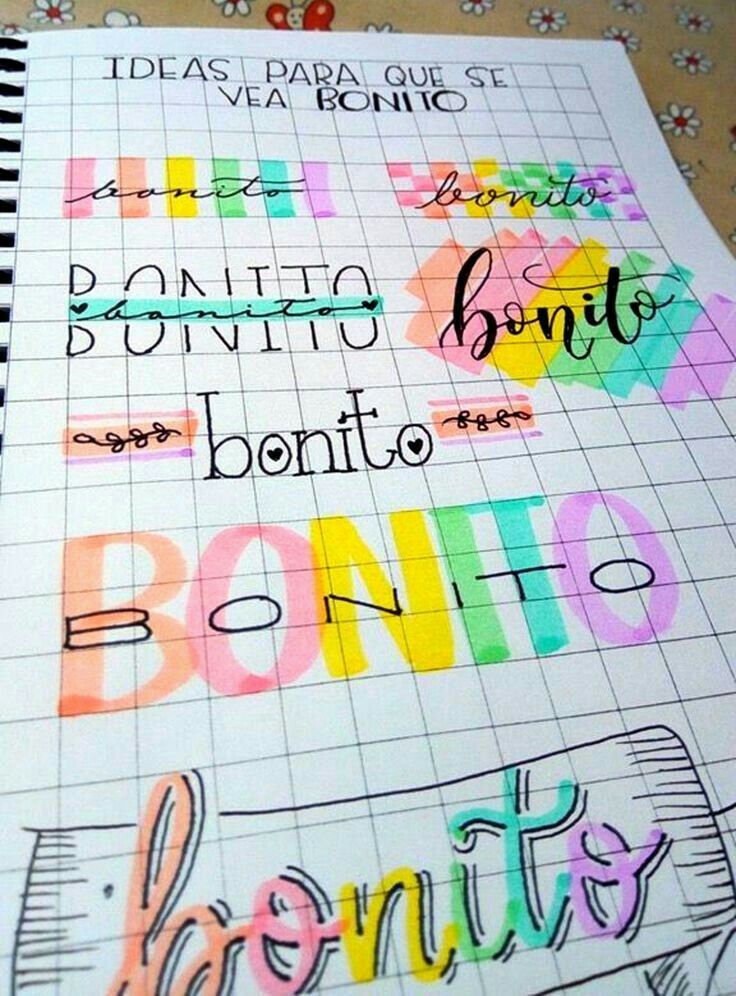 IDEAS PARA QUE SE
VEA BONITO
bonito bonito
BONITO
bonito
bonito
bonito
BONITO
BONITO
bonito